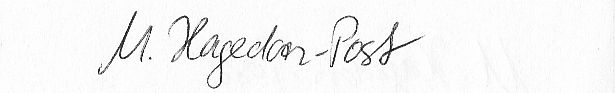 M. Hagedorn-Post